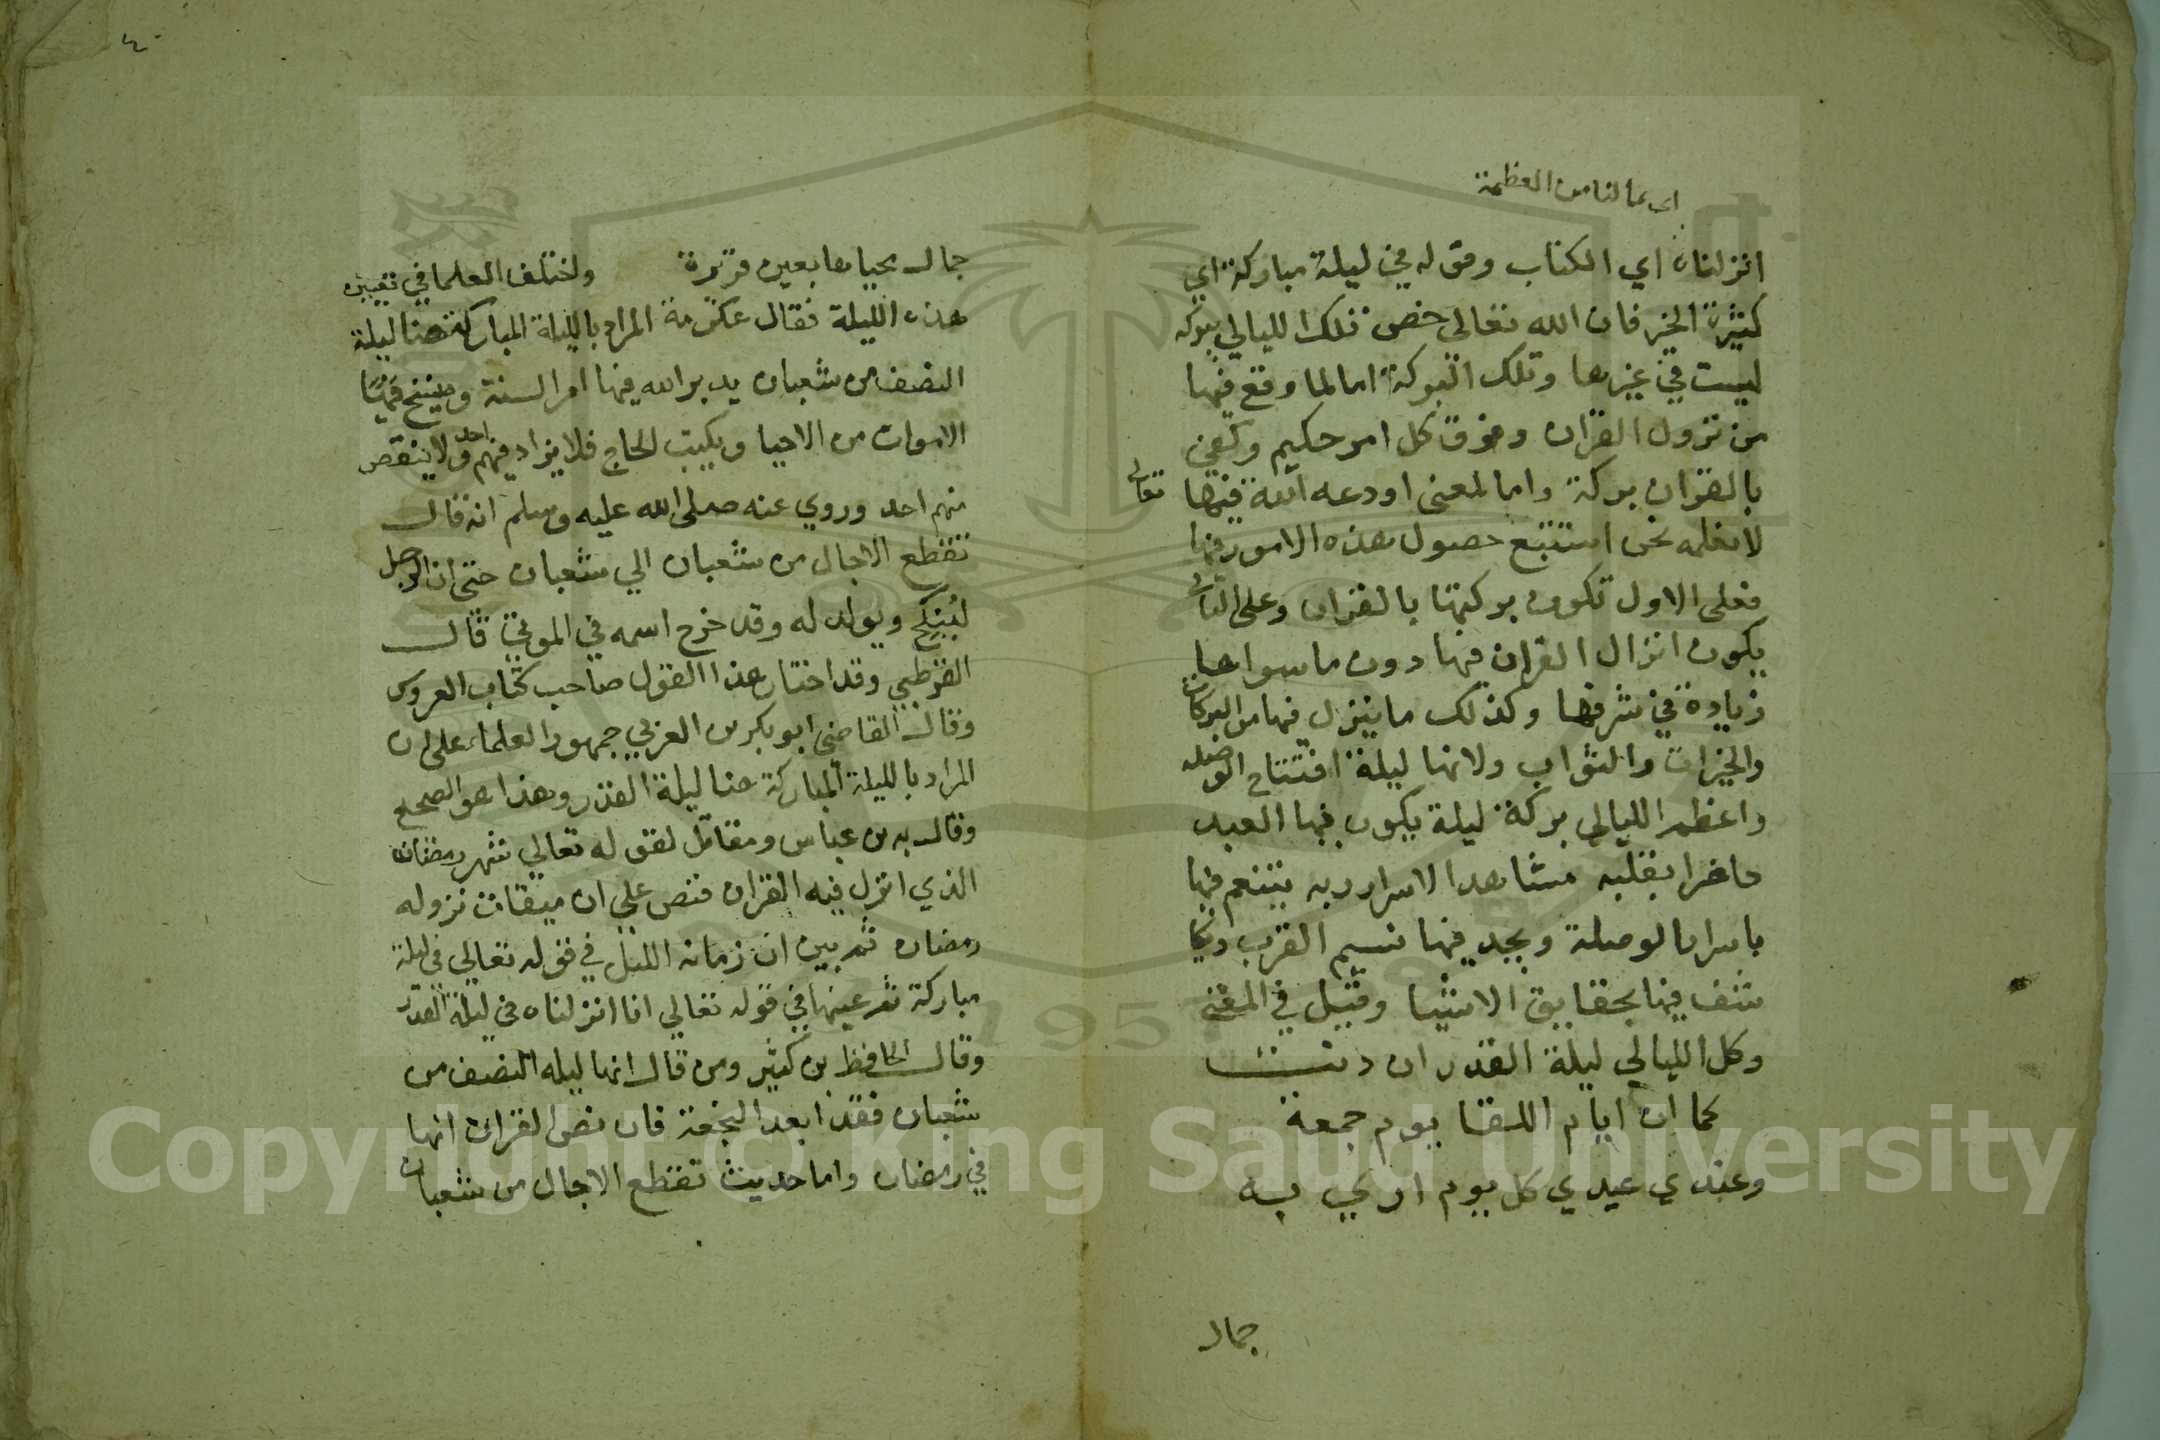 اي بما لنا من العظمة
انزلناه اي الكتاب وقوله في ليلة مباركة اي
كثيرة الخير فان الله تعالى خص تلك الليالي ببركه
ليست في غيرها وتلك البركة اما لما وقع فيها
من نزول القران وفرق كل امر حكيم وكفى
بالقران بركة واما لمعنى اودعه الله فيها
تعالى
لا نعلمه نحن استتبع حصول هذه الامور فيها
فعلى الاول تكون بركتها بالقران وعلى الثاني
يكون انزال القران فيها دون ما سواها
زيادة في شرفها وكذلك ما ينزل فيها من البركات
والخيرات والثواب ولانها ليلة افتتاح الوصله
واعظم الليالي بركة ليلة يكون فيها العبد
حاضرا بقلبه مشاهدا لاسرار ربه يتنعم فيها
باسرار الوصلة ويجد فيها نسيم القرب
فيها بحقايق الاشيا وقيل في المعنى
وكل الليالي ليلة القدر ان دنت
كما ان ايام اللقا يوم جمعة
وعندي عيدي كل يوم اري به
جمال
٤٠
جمال محياها بعين قريرة واختلف العلما في تعيين
هذه الليلة فقال عكرمة المراد بالليلة المباركة هنا ليلة
النصف من شعبان يدبر الله فيها امر السنة وينسخ فيها
الاموات من الاحيا ويكتب الحاج فلا يزاد فيهم احد ولا ينقص
منهم احد وروي عنه صلى الله عليه وسلم انه قال
تقطع الاجال من شعبان الي شعبان حتى ان الرجل
لينكح ويولد له وقد خرج اسمه في الموتى قال
القرطبي وقد اختار هذا القول صاحب كتاب العروس
وقال القاضي ابو بكر بن العربي جمهور العلماء على ان
المراد بالليلة المباركة هنا ليلة القدر وهذا هو الصحيح
وقال به بن عباس ومقاتل لقوله تعالي شهر رمضان
الذي انزل فيه القران فنص علي ان ميقات نزوله
رمضان ثم بين ان زمانه الليل في قوله تعالي في ليلة
مباركة ثم عينها في قوله تعالي انا انزلناه في ليلة القدر
وقال الحافظ بن كثير ومن قال انها ليله النصف من
شعبان فقد ابعد النجعة فان نص القران انها
في رمضان واما حديث تقطع الاجال من شعبان
Copyright © King Saud University
1957